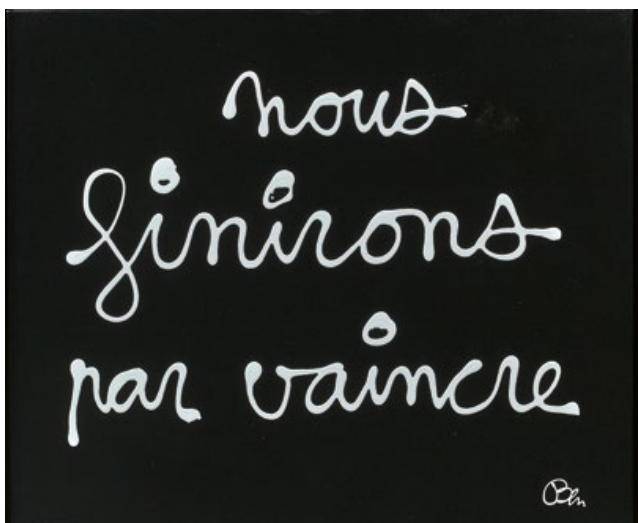 nous
finirons
par vaincre
Ben